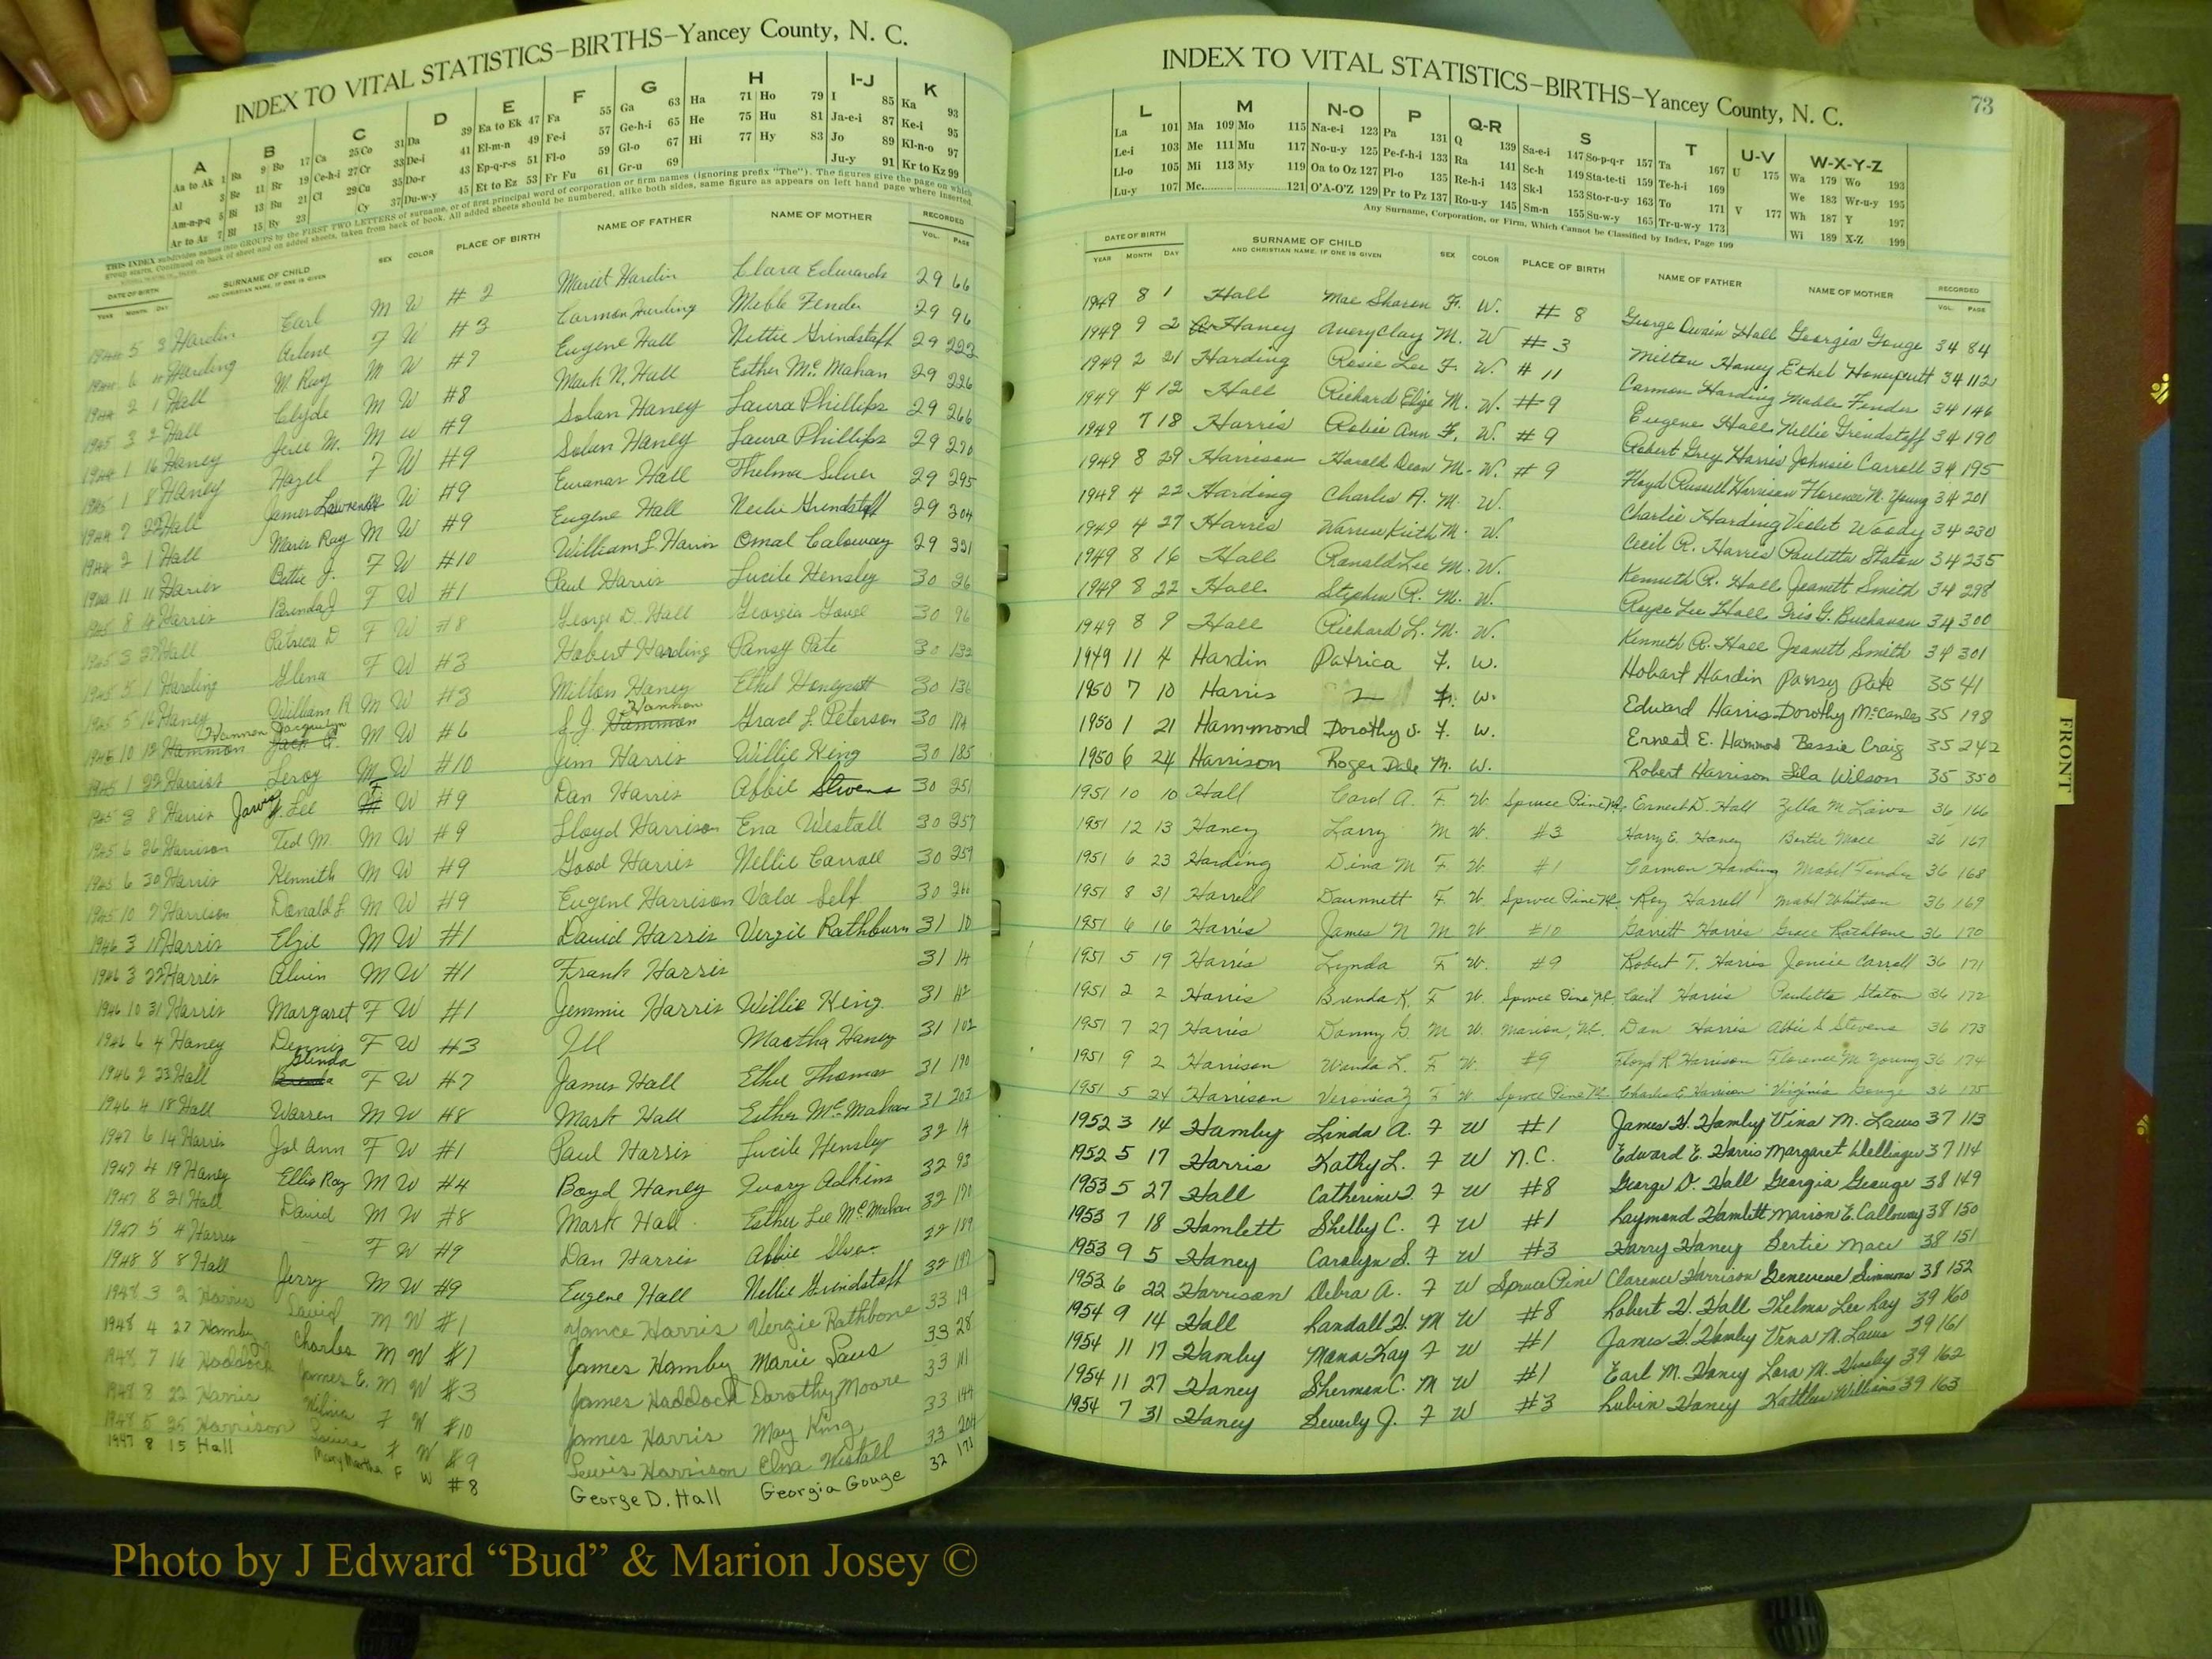 INDEX TO VITAL STATISTICS–BIRTHS–Yancey County, N. C.
A B C D E F G H I-J K
Aa to Ak 1 Ba 9 Bo 17 Ca 25 Co 31 Da 39 Ea to Ek 47 Fa 55 Ga 63 Ha 71 Ho 79 I 85 Ka 93
Al 3 Be 11 Br 19 Ce-h-i 27 Cr 33 De-i 41 El-m-n 49 Fe-i 57 Ge-h-i 65 He 75 Hu 81 Ja-e-i 87 Ke-i 95
Am-n-p-q 5 Bi 13 Bu 21 Cl 29 Cu 35 Do-r 43 Ep-q-r-s 51 Fl-o 59 Gl-o 67 Hi 77 Hy 83 Jo 89 Kl-n-o 97
Ar to Az 7 Bl 15 By 23 Cy 37 Du-w-y 45 Et to Ez 53 Fr Fu 61 Gr-u 69 Ju-y 91 Kr to Kz 99
THIS INDEX subdivides names into GROUPS by the FIRST TWO LETTERS of surname, or of first principal word of corporation or firm names (ignoring prefix "The"). The figures give the page on which
group starts. Continued on back of sheet and on added sheets, taken from back of book. All added sheets should be numbered, alike both sides, same figure as appears on left hand page where inserted.
DATE OF BIRTH SURNAME OF CHILD SEX COLOR PLACE OF BIRTH NAME OF FATHER NAME OF MOTHER RECORDED
YEAR MONTH DAY AND CHRISTIAN NAME, IF ONE IS GIVEN VOL. PAGE
5 3 Hardin Earl M W #2 Hardin Clara Edwards 29 66
6 Harding Arlene F W #3 Carmon Harding Meble Fender 29 96
2 1 Hall M. Ray M W #7 Eugene Hall Nettie Grindstaff 29 222
1945 3 2 Hall Clyde M W #8 Mark N. Hall Esther McMahan 29 226
1 16 Haney Jerel M. M W #9 Solan Haney Laura Phillips 29 266
1945 1 8 Haney Hazel F W #9 Solan Haney Laura Phillips 29 270
22 Hall James Lawrence W #9 Hall Thelma Silver 29 295
2 1 Hall Ray M W #9 Eugene Hall Grindstaff 29 304
11 11 Harris Bettie J. F W #10 William L. Harris Omal Caloway 29 331
1945 8 Harris Brenda J F W #1 Paul Harris Lucile Hensley 30 26
1945 3 Hall Patrica D F W #8 George D. Hall Georgia 30 96
1945 5 1 Harding Glena F W #3 Hobert Harding Pansy Pate 30 132
1945 5 16 Haney William R M W #3 Milton Haney Ethel 30 136
1945 10 12 Hannon Jacqulyn M W #6 S. J. Hannon Grace L. Peterson 30
1945 1 22 Harris Leroy M W #10 Jim Harris Willie King 30 185
1945 3 8 Harris Lee F W #9 Dan Harris Abbie Stevens 30 251
1945 6 26 Harrison Ted M. M W #9 Lloyd Harrison Ena Westall 30 257
1945 6 30 Harris Kenneth M W #9 Good Harris Nellie Carroll 30 259
1945 10 7 Harrison Donald L. M W #9 Eugene Harrison Valda Self 30 266
1946 3 11 Harris Elzie M W #1 David Harris Vergie Rathburn 31 10
1946 3 22 Harris Alvin M W #1 Frank Harris 31 14
1946 10 31 Harris Margaret F W #1 Jemmie Harris Willie King 31 42
1946 6 4 Haney Dennis F W #3 Ill Martha Haney 31 102
1946 2 23 Hall Glenda F W #7 James Hall Ethel Thomas 31 190
1946 4 18 Hall Warren M W #8 Mark Hall Esther McMahan 31 203
1947 6 14 Harris Jol Ann F W #1 Paul Harris Lucile Hensley 32 14
1947 4 19 Haney Ellis Ray M W #4 Boyd Haney Ivory Adkins 32 93
1947 8 21 Hall David M W #8 Mark Hall Esther Lee McMahan 32 170
1947 5 4 Harris F W #9 Dan Harris Abbie 32 189
1948 8 8 Hall Jerry M W #9 Eugene Hall Nellie Grindstaff 32 197
1948 3 2 Harris David M W #1 Yance Harris Vergie Rathbone 33 19
1948 4 27 Hamby Charles M W #1 James Hamby Marie Laws 33 28
1948 7 16 Haddock James E. M W #3 James Haddock Dorothy Moore 33 111
1948 8 22 Harris Wilma F W #10 James Harris May King 33 144
1948 5 25 Harrison F W #9 Lewis Harrison Elna Westall 33 204
1947 8 15 Hall Mary Martha F W #8 George D. Hall Georgia Gouge 32 171
INDEX TO VITAL STATISTICS–BIRTHS–Yancey County, N. C. 73
L M N-O P Q-R S T U-V W-X-Y-Z
La 101 Ma 109 Mo 115 Na-e-i 123 Pa 131 Q 139 Sa-e-i 147 So-p-q-r 157 Ta 167 U 175 Wa 179 Wo 193
Le-i 103 Me 111 Mu 117 No-u-y 125 Pe-f-h-i 133 Ra 141 Sc-h 149 Sta-te-ti 159 Te-h-i 169 We 183 Wr-u-y 195
Ll-o 105 Mi 113 My 119 Oa to Oz 127 Pl-o 135 Re-h-i 143 Sk-l 153 Sto-r-u-y 163 To 171 V 177 Wh 187 Y 197
Lu-y 107 Mc 121 O'A-O'Z 129 Pr to Pz 137 Ro-u-y 145 Sm-n 155 Su-w-y 165 Tr-u-w-y 173 Wi 189 X-Z 199
Any Surname, Corporation, or Firm, Which Cannot be Classified by Index, Page 199
DATE OF BIRTH SURNAME OF CHILD SEX COLOR PLACE OF BIRTH NAME OF FATHER NAME OF MOTHER RECORDED
YEAR MONTH DAY AND CHRISTIAN NAME, IF ONE IS GIVEN VOL. PAGE
1949 8 1 Hall Mae Sharon F. W. #8 George Dwain Hall Georgia Gouge 34 84
1949 9 2 Haney Avery Clay M. W #3 Milton Haney Ethel Honeycutt 34 112
1949 2 21 Harding Rosie Lee F. W. #11 Carmon Harding Mable Fender 34 146
1949 4 12 Hall Richard Elzie M. W. #9 Eugene Hall Nellie Grindstaff 34 190
1949 7 18 Harris Robie Ann F. W. #9 Robert Grey Harris Johnsie Carroll 34 195
1949 8 29 Harrison Harold Dean M. W. #9 Floyd Russell Harrison Florence M. Young 34 201
1949 4 22 Harding Charles A. M. W. Charlie Harding Violet Woody 34 230
1949 4 27 Harris Warren Keith M. W. Cecil R. Harris Pauletta Staton 34 235
1949 8 16 Hall Ronald Lee M. W. Kenneth R. Hall Jeanett Smith 34 298
1949 8 22 Hall Stephen R. M. W. Royce Lee Hall Iris G. Buchanan 34 300
1949 8 9 Hall Richard L. M. W. Kenneth R. Hall Jeanett Smith 34 301
1949 11 4 Hardin Patrica F. W. Hobart Hardin Pansy Pate 35 41
1950 7 10 Harris F. W. Edward Harris Dorothy McCanles 35 198
1950 1 21 Hammond Dorothy J. F. W. Ernest E. Hammond Bessie Craig 35 242
1950 6 24 Harrison Roger Dale M. W. Robert Harrison Lila Wilson 35 350
1951 10 10 Hall Carol A. F W. Spruce Pine NC. Ernest D. Hall Zella M. Laws 36 166
1951 12 13 Haney Larry M W. #3 Harry E. Haney Bertie Mace 36 167
1951 6 23 Harding Dina M F W. #1 Carmon Harding Mabel Fender 36 168
1951 8 31 Harrell Daunnett F W. Spruce Pine NC. Roy Harrell Mabel Whitson 36 169
1951 6 16 Harris James N M W #10 Garrett Harris Grace Rathbone 36 170
1951 5 19 Harris Lynda F W. #9 Robert T. Harris Jonsie Carroll 36 171
1951 2 2 Harris Brenda K. F W. Spruce Pine NC. Cecil Harris Pauletta Staton 36 172
1951 7 27 Harris Danny G M W. Marion, NC. Dan Harris Abbie S Stevens 36 173
1951 9 2 Harrison Wanda L. F W. #9 Floyd R Harrison Florence M Young 36 174
1951 5 24 Harrison Veronica F W Spruce Pine NC. Charles E Harrison Virginia Gouge 36 175
1952 3 14 Hamby Linda A. F W #1 James H. Hamby Vina M. Laws 37 113
1952 5 17 Harris Kathy L. F W N.C. Edward E. Harris Margaret 37 114
1953 5 27 Hall Catherine F W #8 George D. Hall Georgia Geouge 38 149
1953 7 18 Hamlett Shelby C. F W #1 Raymond Hamlett Marion E. Calloway 38 150
1953 9 5 Haney Carolyn S. F W #3 Harry Haney Bertie Mace 38 151
1953 6 22 Harrison Debra A. F W Spruce Pine Clarence Harrison Genevieve Simmons 38 152
1954 9 14 Hall Randall H. M W #8 Robert H. Hall Thelma Lee Ray 39 160
1954 11 17 Hamby Mona Kay F W #1 James H. Hamby Vena M. Laws 39 161
1954 11 27 Haney Sherman C. M W #1 Earl M. Haney Lora M. Hensley 39 162
1954 7 31 Haney Beverly J. F W #3 Rubin Haney Williams 39 163
FRONT
Photo by J Edward “Bud” & Marion Josey ©